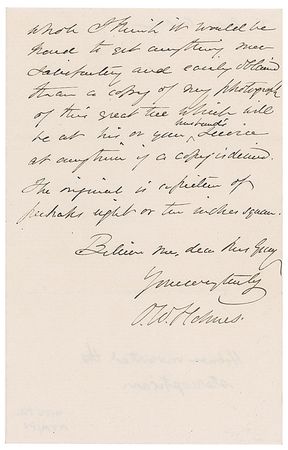 whole I think it would be
hard to get anything more
satisfactory and easily obtained
than a copy of my photograph
of this great tree which will
be at his or your husband's service
at anything if a copy is desired.
The original is a picture of
perhaps eight or ten inches square.
Believe me, dear Mrs Gray
Yours very truly
O. W. Holmes.